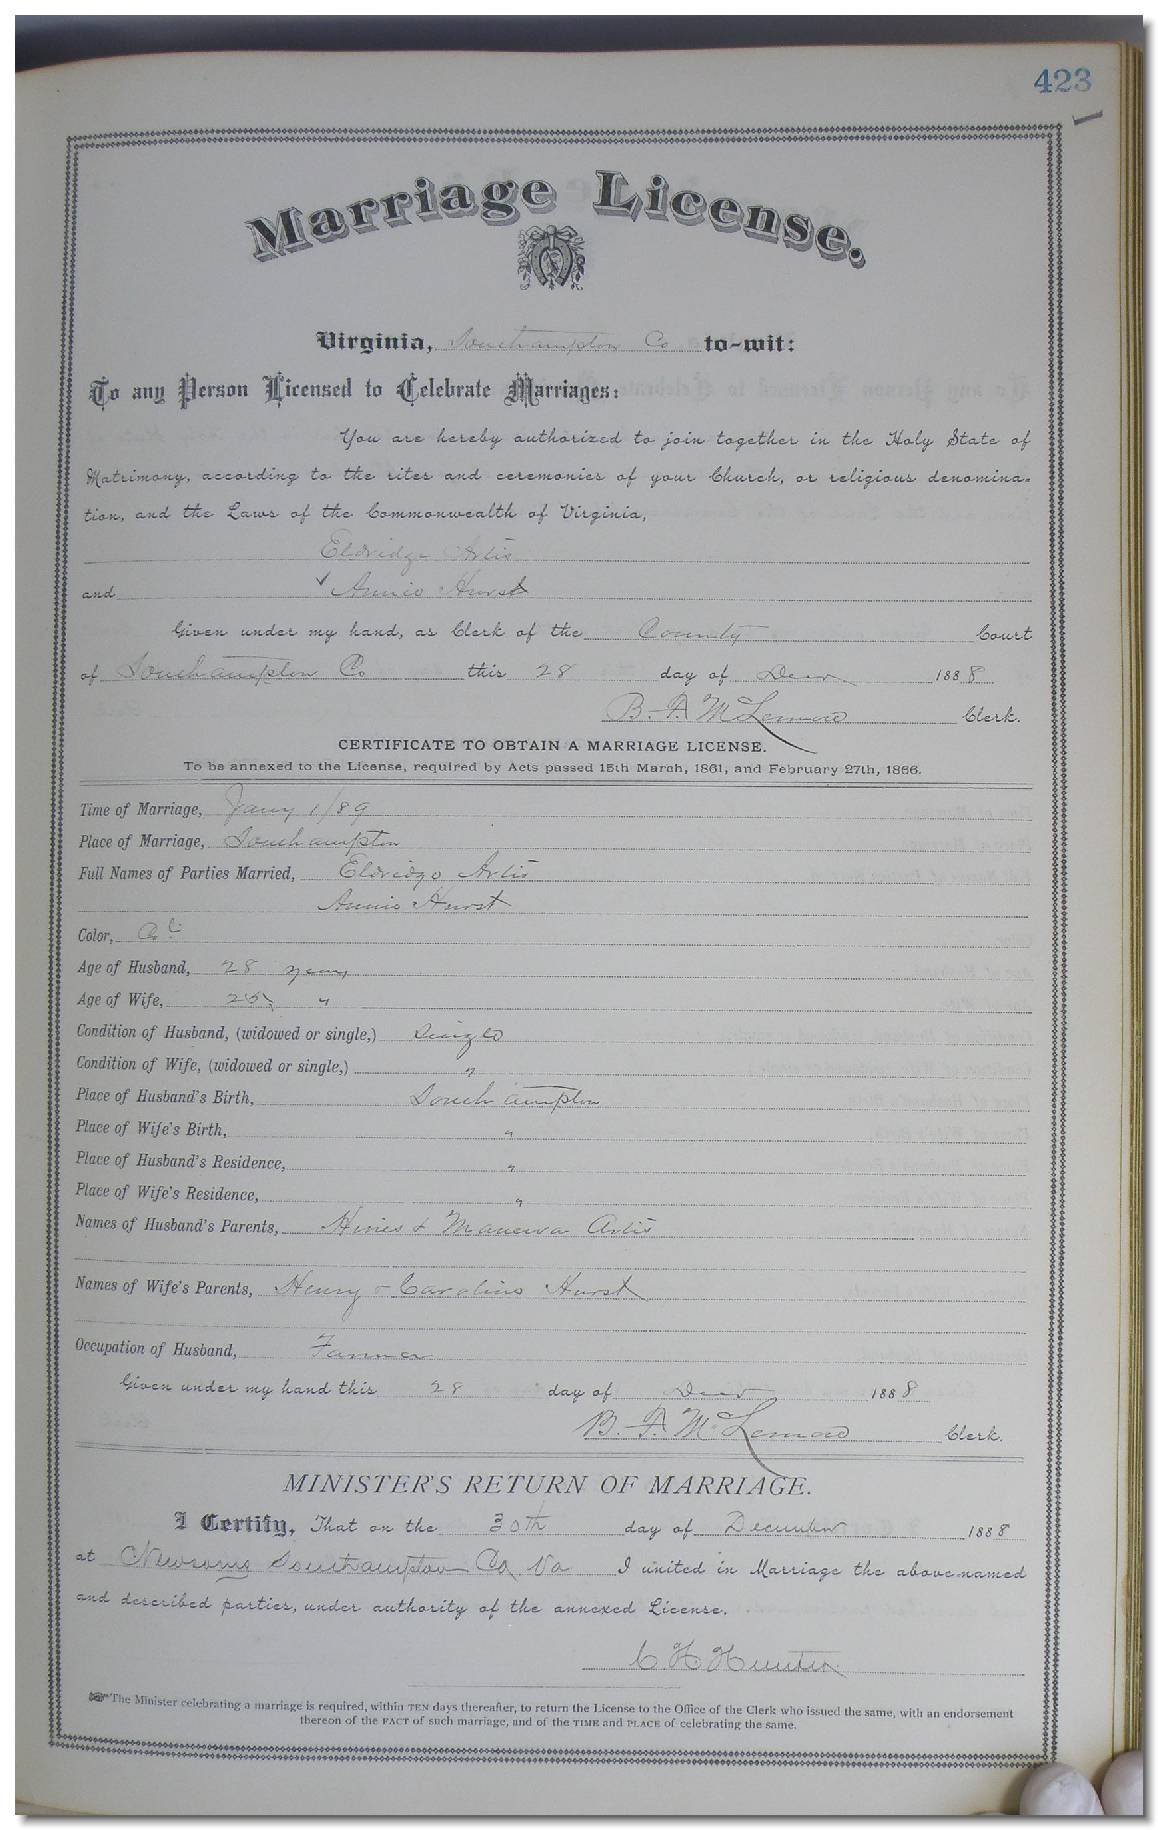 423
Marriage License.
Virginia, Southampton Co to-wit:
To any Person Licensed to Celebrate Marriages:
You are hereby authorized to join together in the Holy State of
Matrimony, according to the rites and ceremonies of your Church, or religious denomina-
tion, and the Laws of the Commonwealth of Virginia,
Eldridge Artis
and Annie Hurst
Given under my hand, as Clerk of the County Court
of Southampton Co this 28 day of Decr 1888
B. F. McLemore Clerk.
CERTIFICATE TO OBTAIN A MARRIAGE LICENSE.
To be annexed to the License, required by Acts passed 15th March, 1861, and February 27th, 1866.
Time of Marriage, Jany 1/89
Place of Marriage, Southampton
Full Names of Parties Married, Eldridge Artis
Annie Hurst
Color, Col
Age of Husband, 28 years
Age of Wife, 25 "
Condition of Husband, (widowed or single,) Single
Condition of Wife, (widowed or single,) "
Place of Husband's Birth, Southampton
Place of Wife's Birth, "
Place of Husband's Residence, "
Place of Wife's Residence, "
Names of Husband's Parents, Hines & Manerva Artis
Names of Wife's Parents, Henry & Caroline Hurst
Occupation of Husband, Farmer
Given under my hand this 28 day of Decr 1888
B. F. McLemore Clerk.
MINISTER'S RETURN OF MARRIAGE.
I Certify, That on the 30th day of December 1888
at Newsoms Southampton Co, Va I united in Marriage the above-named
and described parties, under authority of the annexed License.
C H Hunter
The Minister celebrating a marriage is required, within TEN days thereafter, to return the License to the Office of the Clerk who issued the same, with an endorsement
thereon of the FACT of such marriage, and of the TIME and PLACE of celebrating the same.